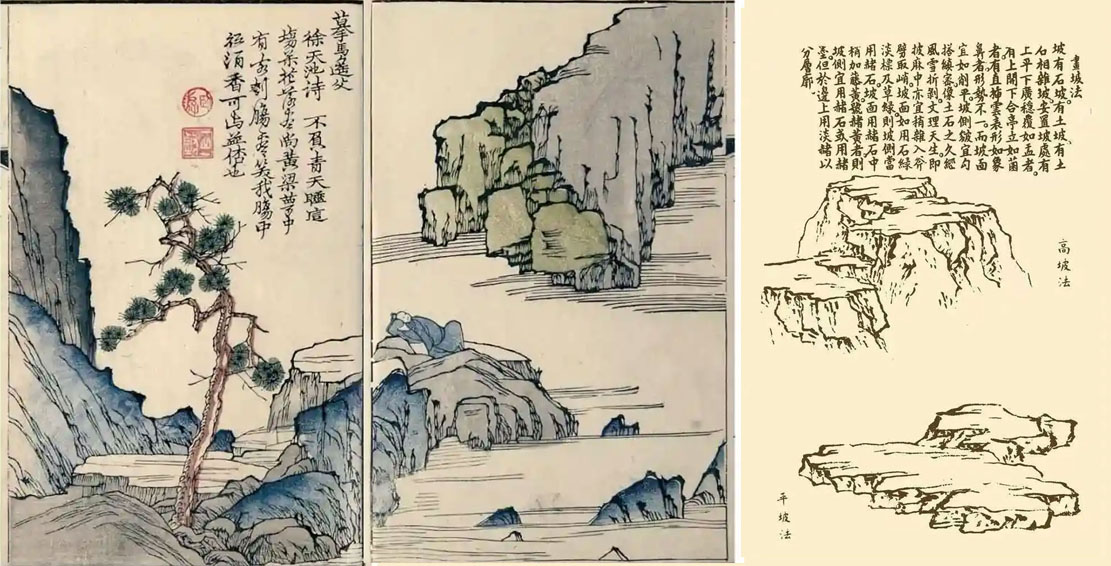 摹馬遙父
徐天池詩 不負青天睡這
塲松花落盡尚黄粱夢中
有客刳腸看笑我腸中
秪酒香可為
畫坡法
坡有石坡有土坡有土
石相雜坡安置坡處有
上平下廣穩覆如盂者
有上開下合亭立如菌
者有直插雲表形如象
鼻者形勢不一而坡面
宜如削平坡側皴宜勾
搭緩密像土石之久經
風雪折剝文理天生即
披麻中亦宜稍雜入斧
劈取峭坡面如用石綠
淡及草綠則坡側當
用赭石坡面用赭石中
稍加藤黃赭黃者則
坡側宜用赭石或用赭
墨但於邊上用淡赭以
分層廓
高坡法
平坡法